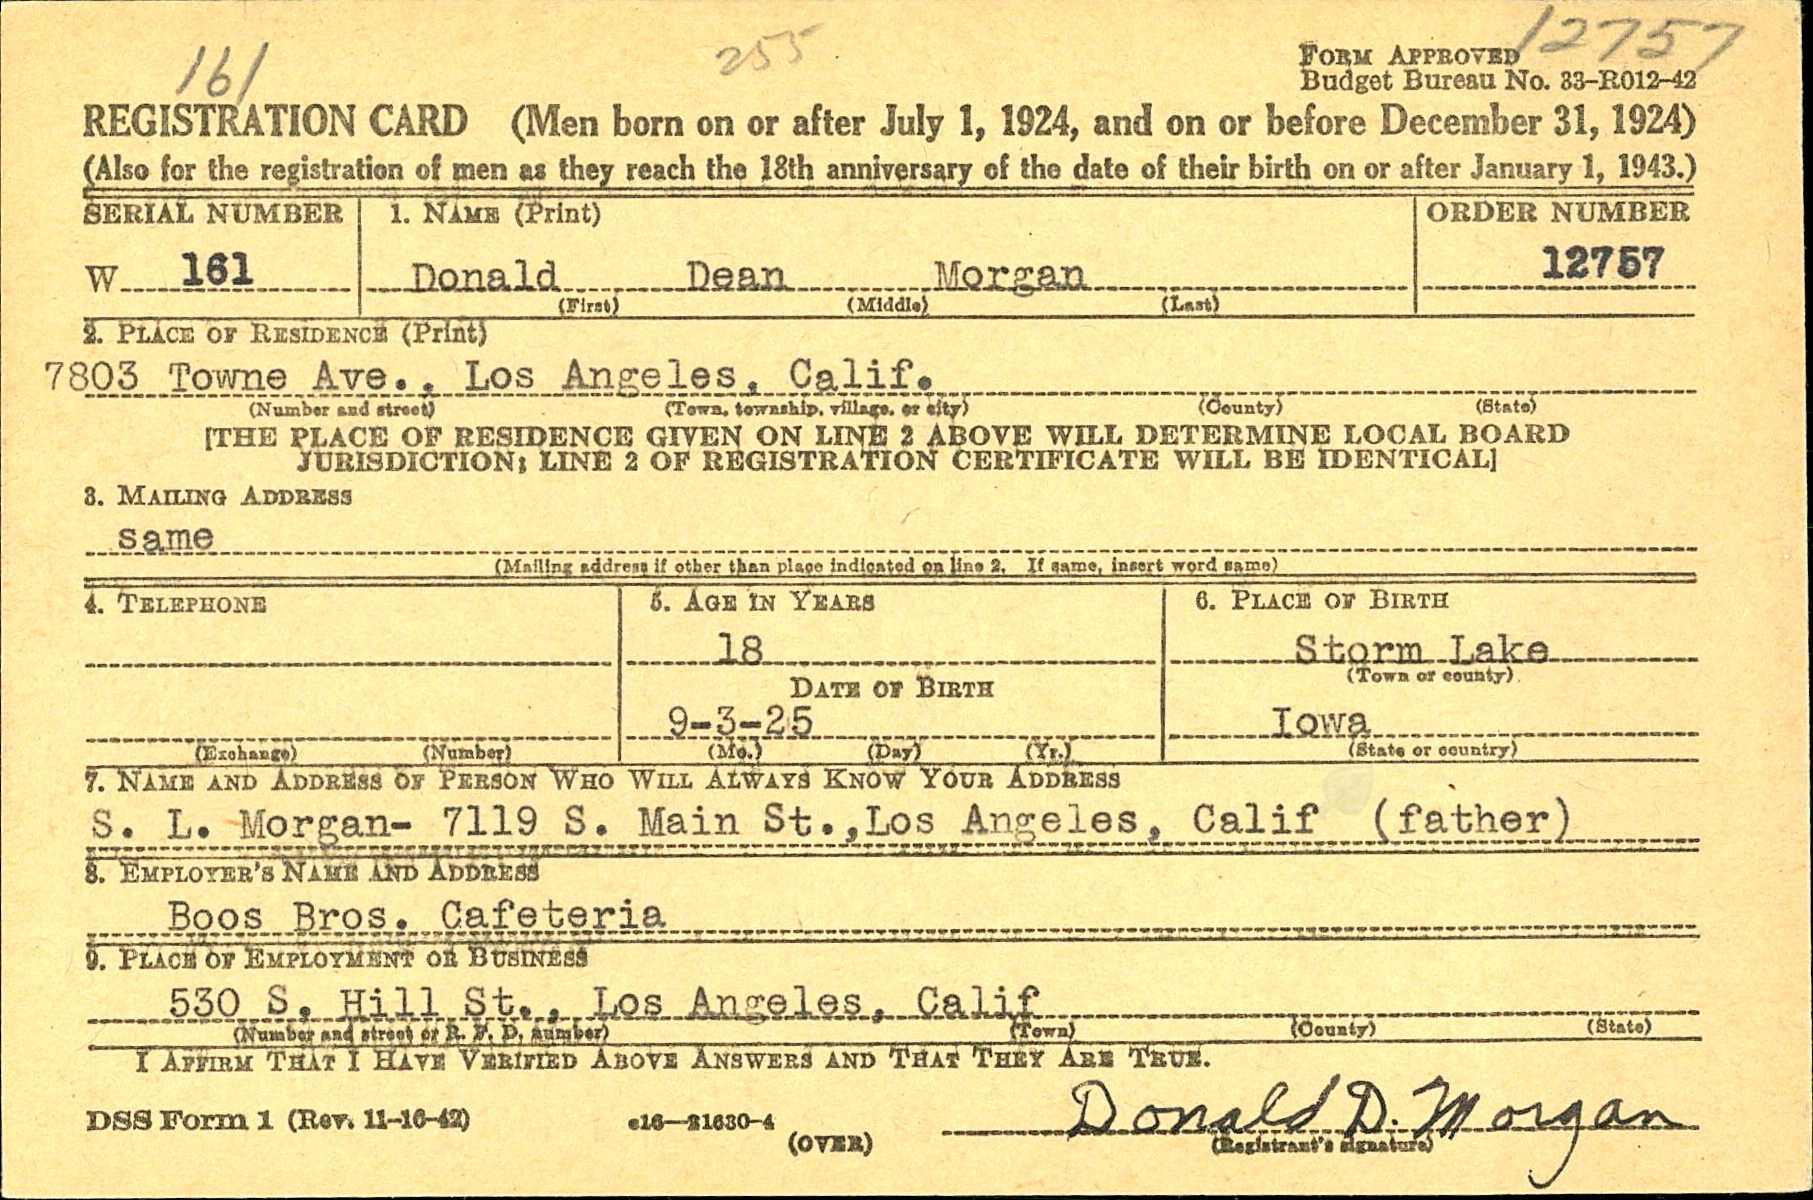 161 255 12757
FORM APPROVED
Budget Bureau No. 33-R012-42
REGISTRATION CARD (Men born on or after July 1, 1924, and on or before December 31, 1924)
(Also for the registration of men as they reach the 18th anniversary of the date of their birth on or after January 1, 1943.)
SERIAL NUMBER 1. NAME (Print) ORDER NUMBER
W 161 Donald Dean Morgan 12757
(First) (Middle) (Last)
2. PLACE OF RESIDENCE (Print)
7803 Towne Ave., Los Angeles, Calif.
(Number and street) (Town, township, village, or city) (County) (State)
[THE PLACE OF RESIDENCE GIVEN ON LINE 2 ABOVE WILL DETERMINE LOCAL BOARD
JURISDICTION; LINE 2 OF REGISTRATION CERTIFICATE WILL BE IDENTICAL]
3. MAILING ADDRESS
same
(Mailing address if other than place indicated on line 2. If same, insert word same)
4. TELEPHONE 5. AGE IN YEARS 6. PLACE OF BIRTH
18 Storm Lake
(Town or county)
DATE OF BIRTH
9-3-25 Iowa
(Exchange) (Number) (Mo.) (Day) (Yr.) (State or country)
7. NAME AND ADDRESS OF PERSON WHO WILL ALWAYS KNOW YOUR ADDRESS
S. L. Morgan- 7119 S. Main St.,Los Angeles, Calif (father)
8. EMPLOYER'S NAME AND ADDRESS
Boos Bros. Cafeteria
9. PLACE OF EMPLOYMENT OR BUSINESS
530 S. Hill St., Los Angeles, Calif
(Number and street or R. F. D. number) (Town) (County) (State)
I AFFIRM THAT I HAVE VERIFIED ABOVE ANSWERS AND THAT THEY ARE TRUE.
DSS Form 1 (Rev. 11-16-42) c16—21630-4 Donald D. Morgan
(OVER) (Registrant's signature)